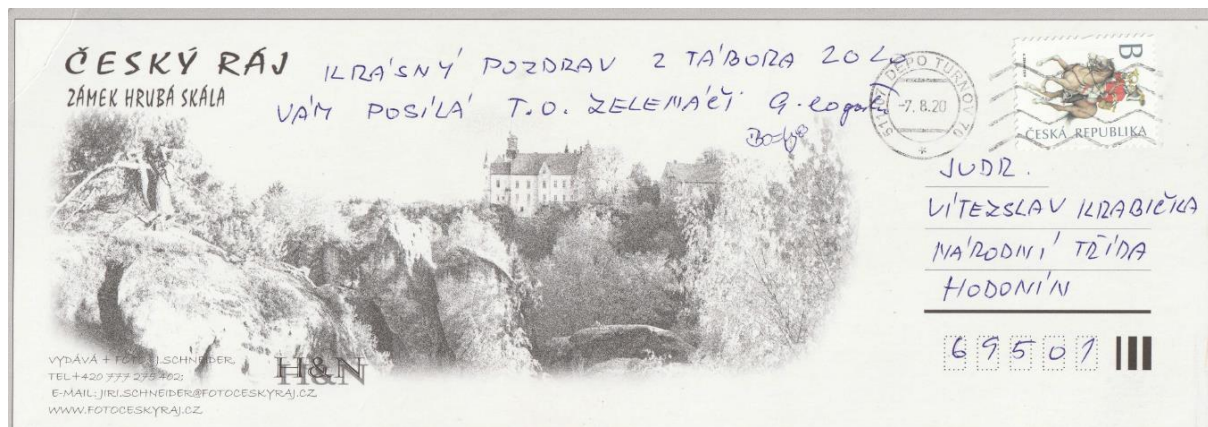 ČESKÝ RÁJ
ZÁMEK HRUBÁ SKÁLA
KRÁSNÝ POZDRAV Z TÁBORA 20
VÁM POSÍLÁ T.O. ZELENÁČI
DEPO TURNOV 70
-7.8.20
B
ČESKÁ REPUBLIKA
JUDR.
VÍTEZSLAV KRABIČKA
NÁRODNÍ TŘÍDA
HODONÍN
69501
VYDÁVÁ + FOTO: J.SCHNEIDER
TEL+420 777 275 402;
E-MAIL: JIRI.SCHNEIDER@FOTOCESKYRAJ.CZ
WWW.FOTOCESKYRAJ.CZ
H&N